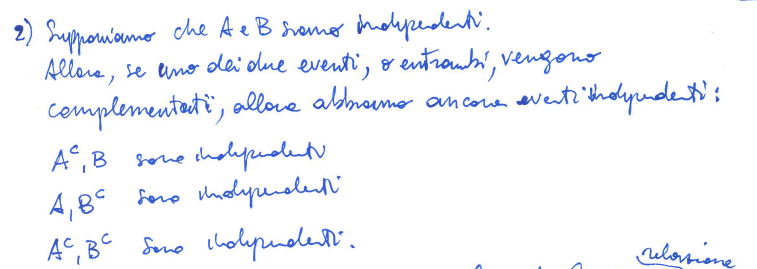 2) Supponiamo che A e B siano indipendenti.
Allora, se uno dei due eventi, o entrambi, vengono
complementati, allora abbiamo ancora eventi indipendenti:
Aᶜ, B sono indipendenti
A, Bᶜ sono indipendenti
Aᶜ, Bᶜ sono indipendenti.
relazione